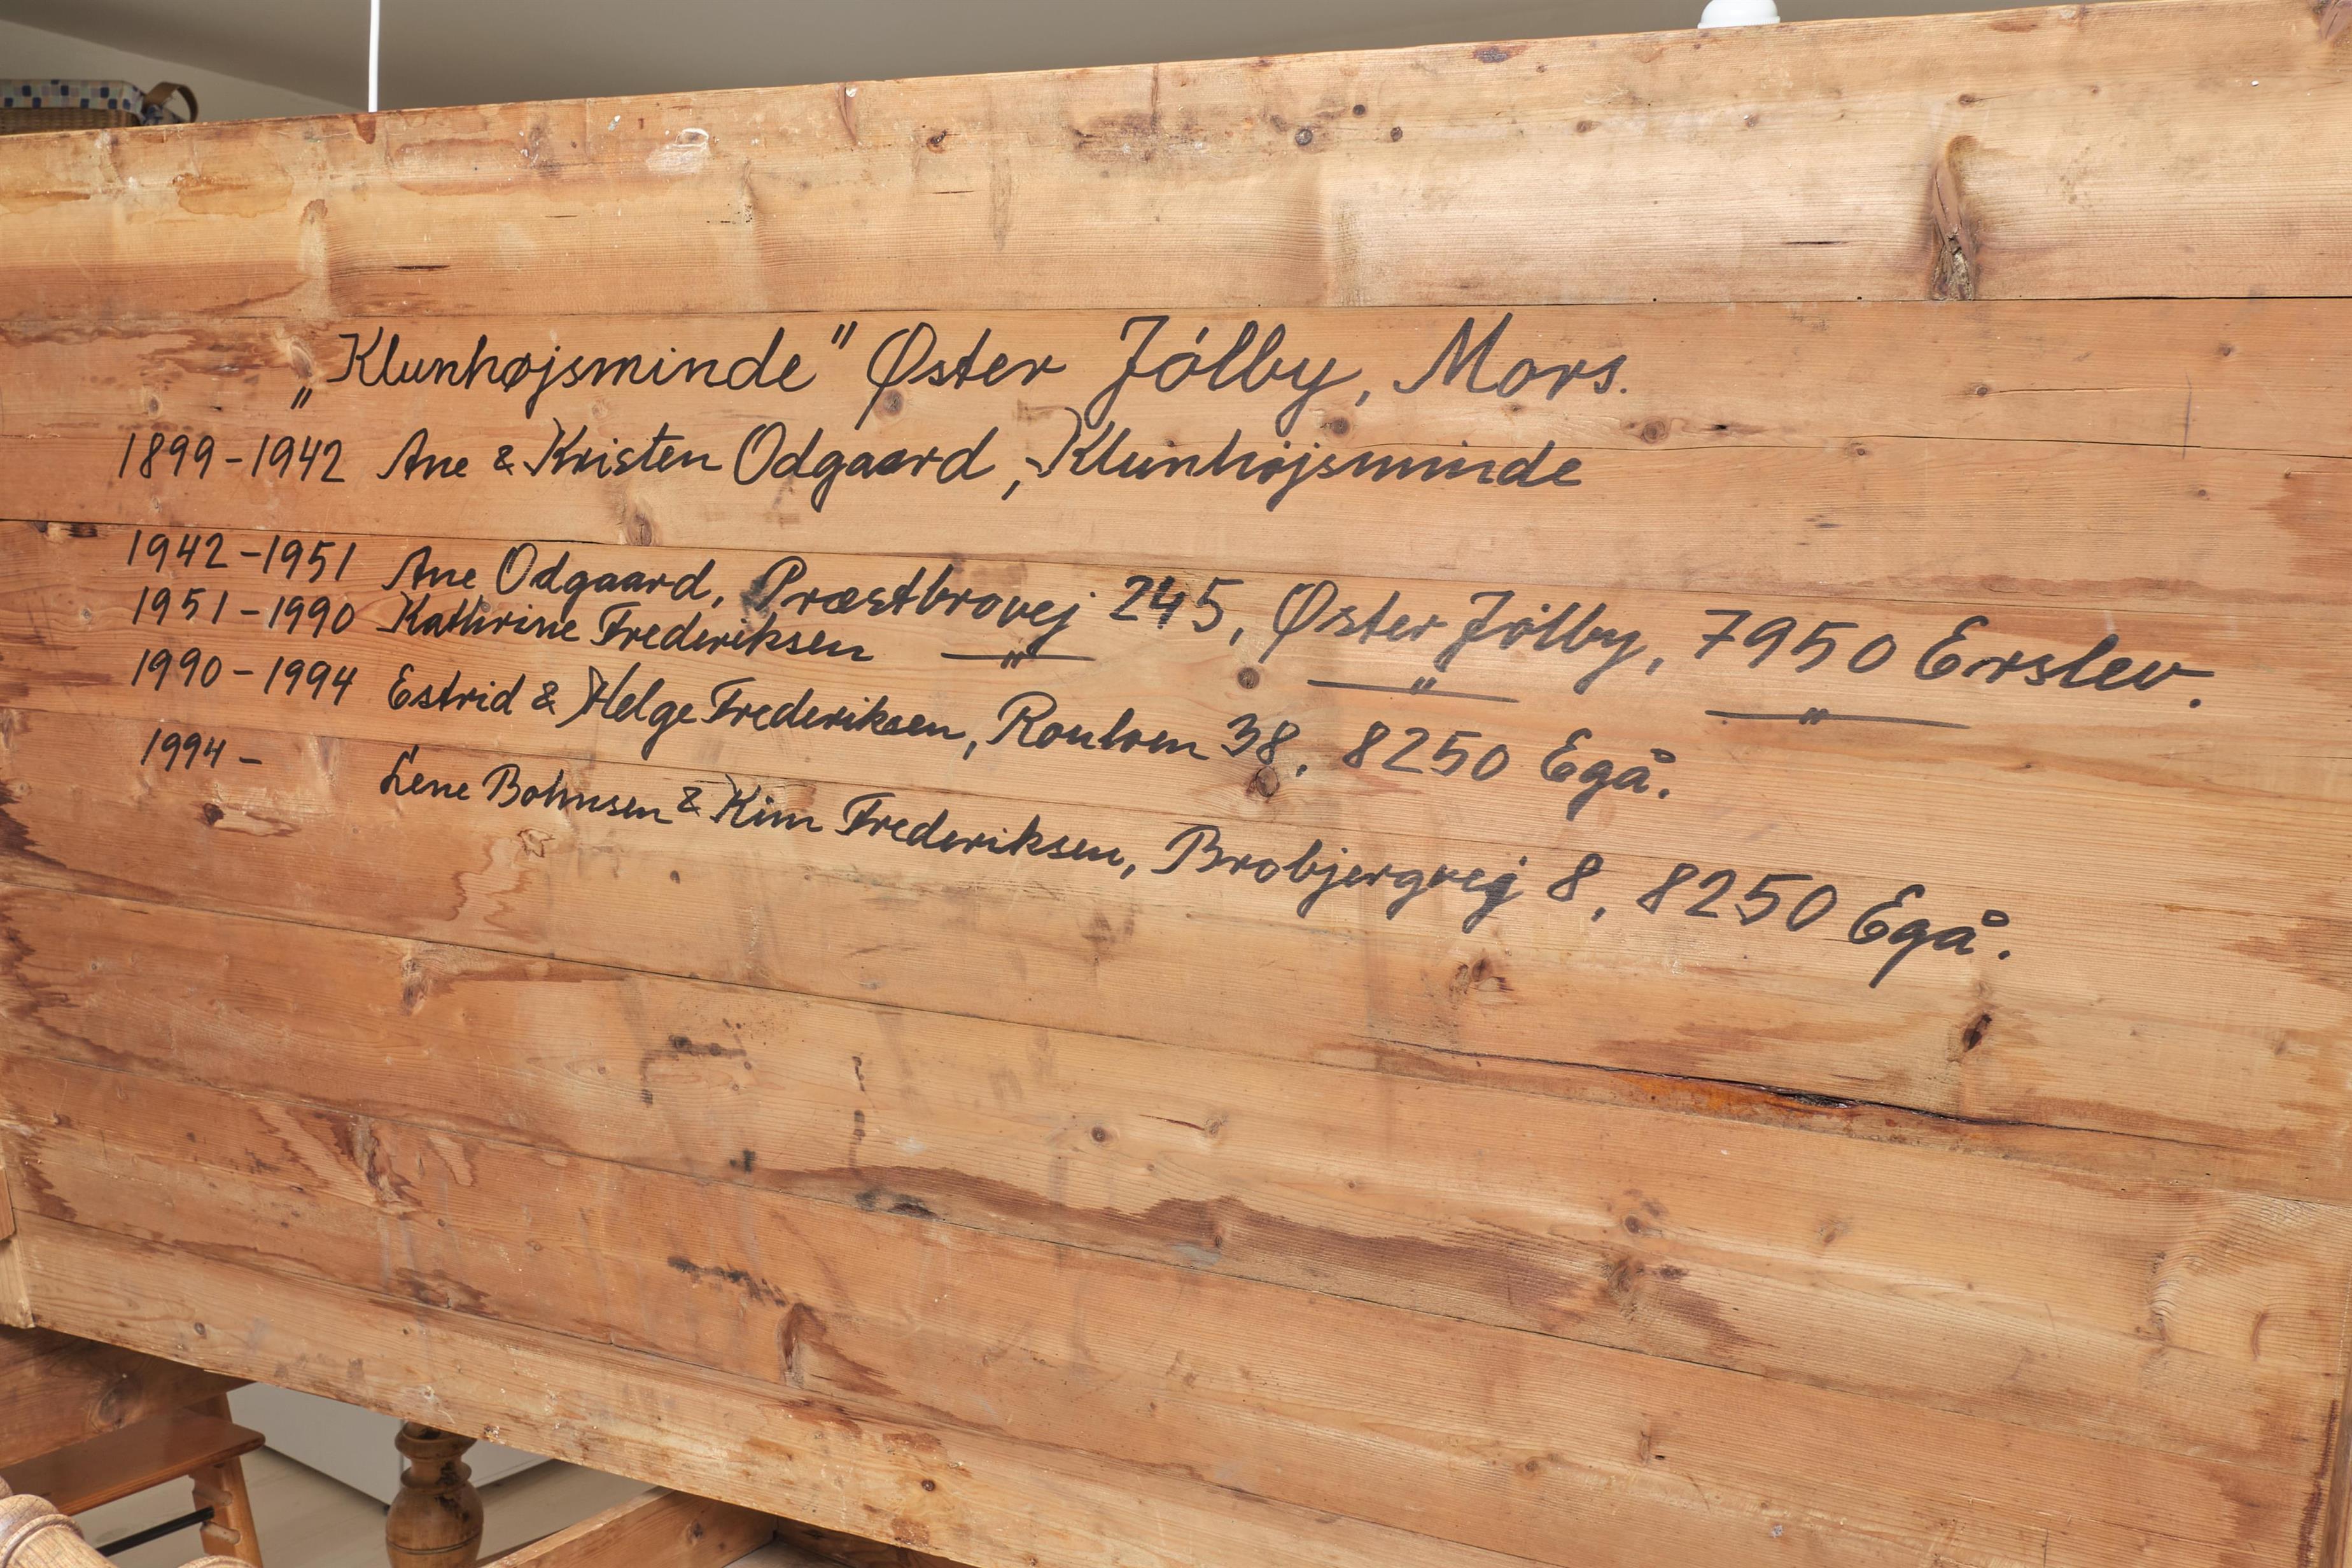 „Klunhøjsminde" Øster Jølby, Mors.
1899-1942 Ane & Kristen Odgaard, Klunhøjsminde
1942-1951 Ane Odgaard, Præstbrovej 245, Øster Jølby, 7950 Erslev.
1951-1990 Kathrine Frederiksen —〃— —〃— —〃—
1990-1994 Estrid & Helge Frederiksen, 38, 8250 Egå.
1994- Lene Bohnsen & Kim Frederiksen, Brobjergvej 8, 8250 Egå.